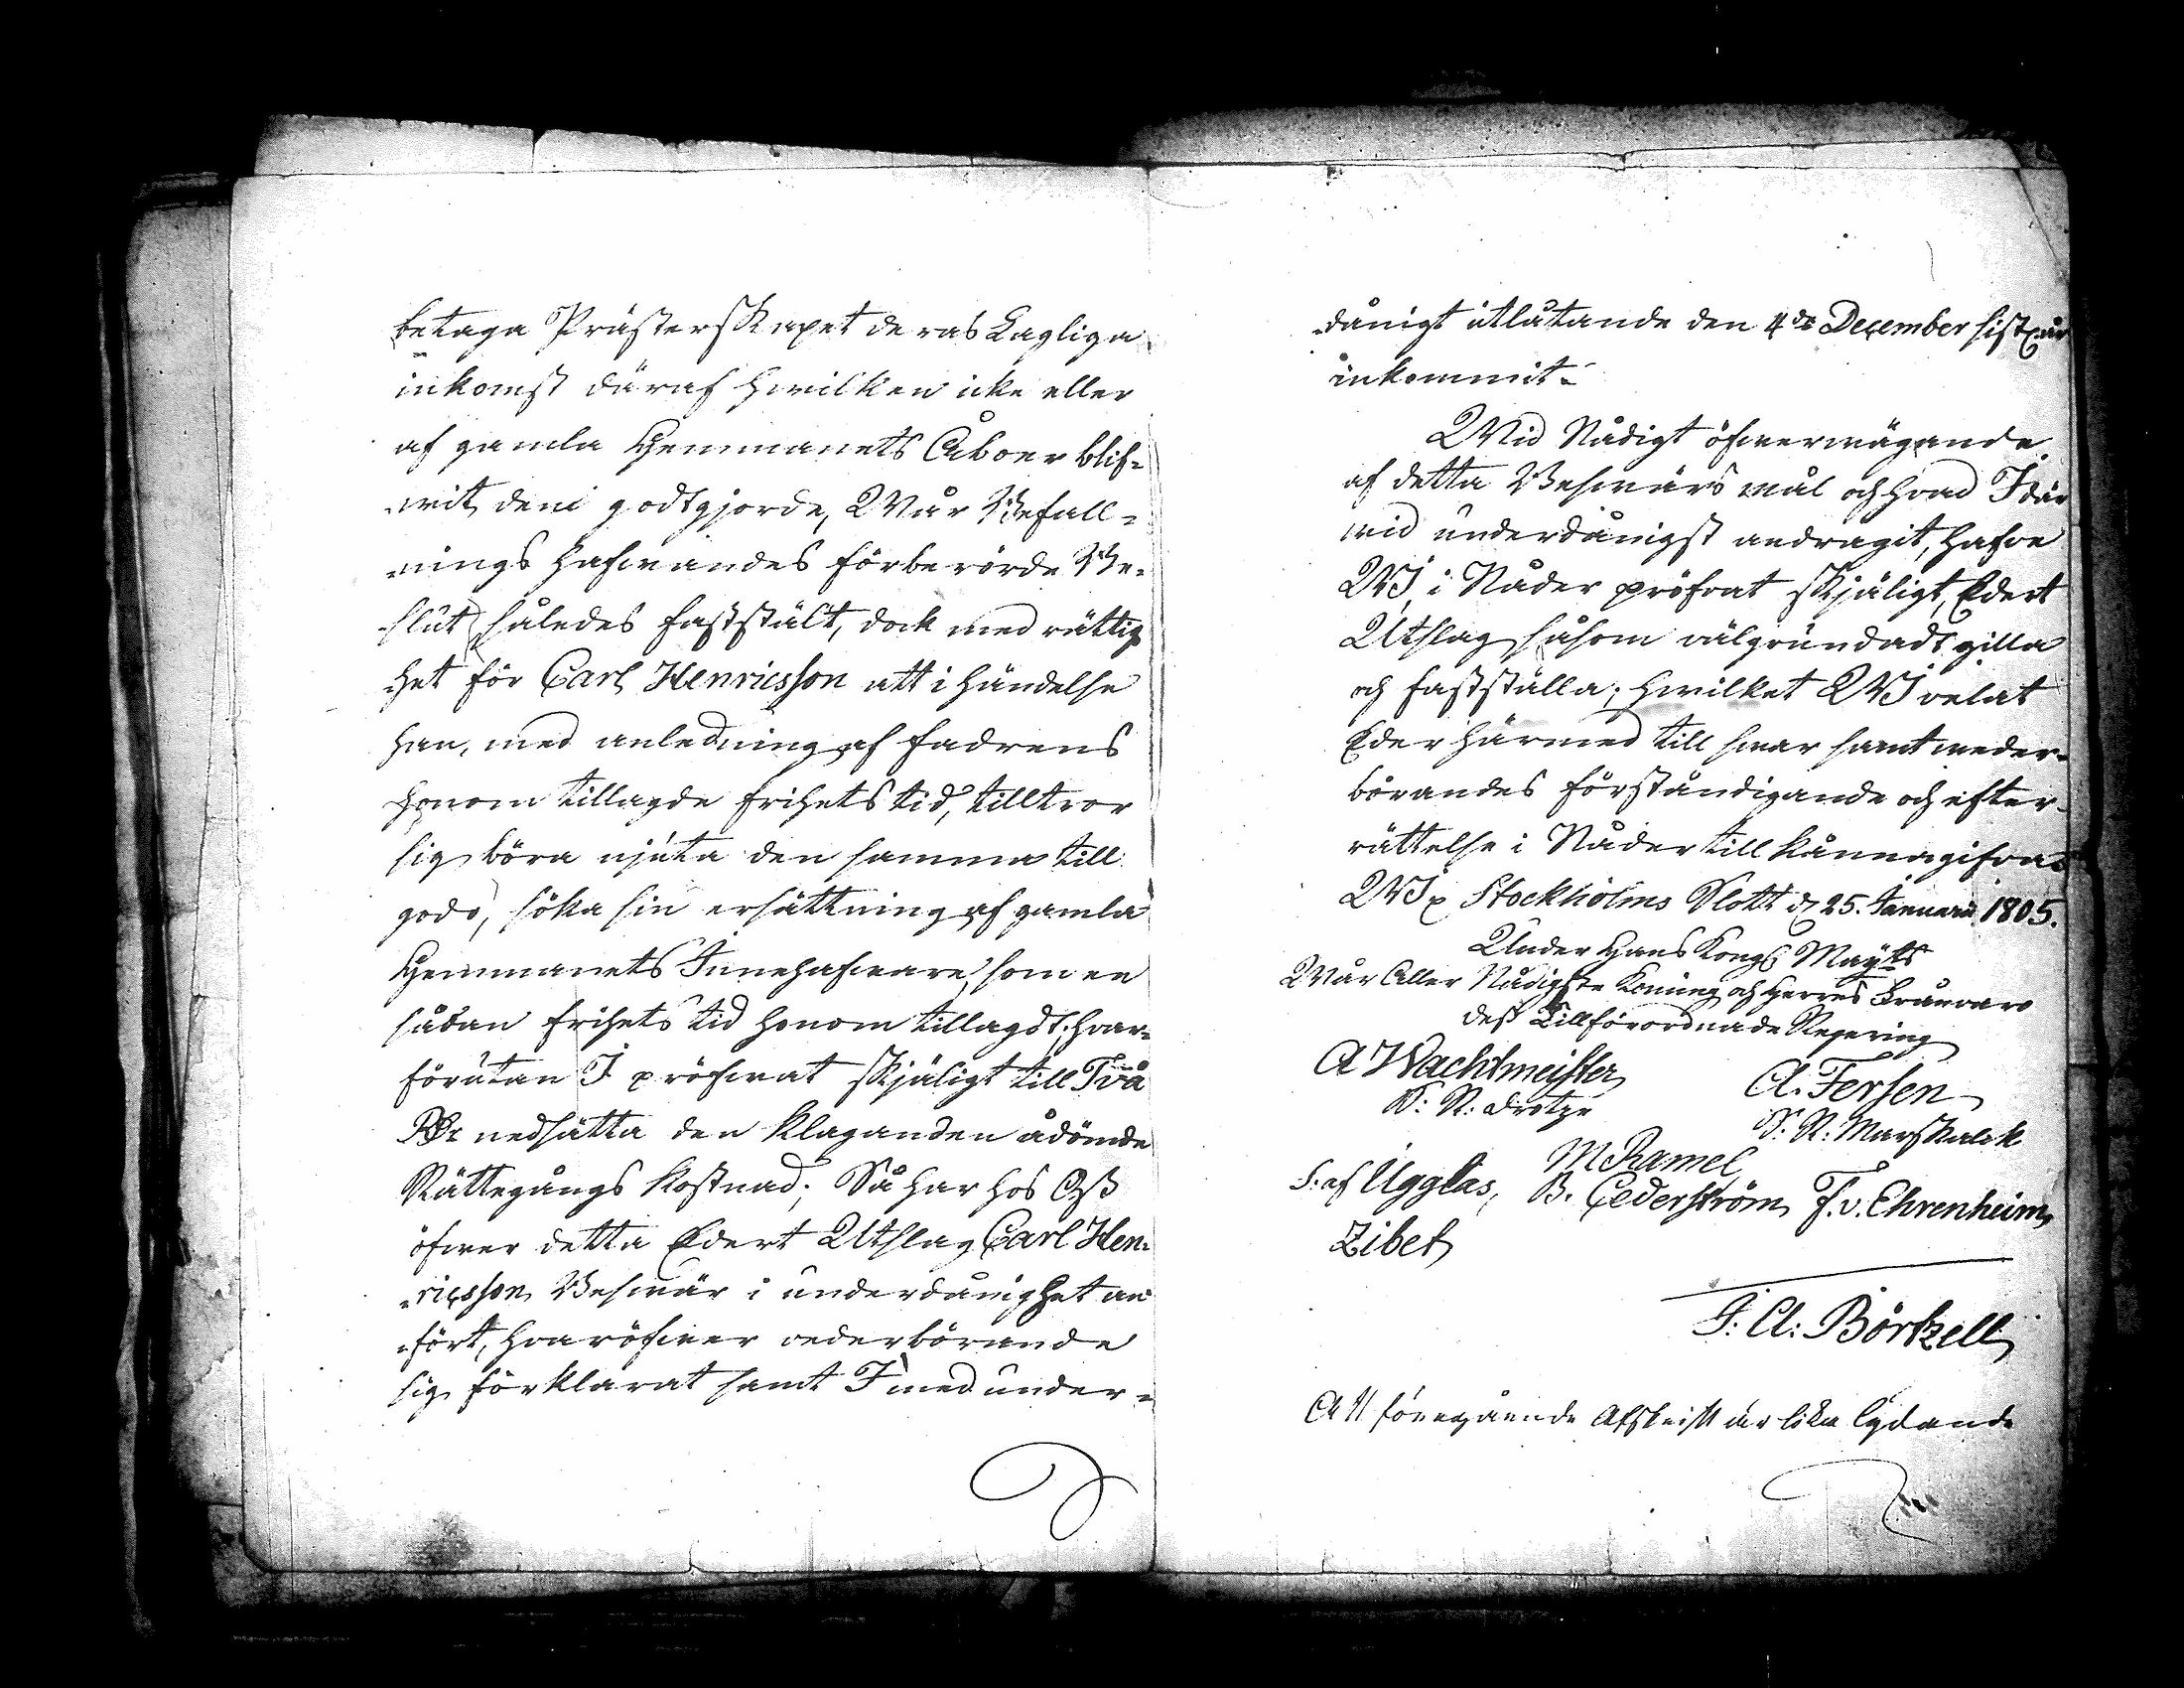 betaga Prästerskapet deras Lagliga
inkomst däraf hwilken icke eller
af gamla Hemmanets Åboer blif-
wit dem godtgjorde, Wår Befall-
nings hafwandes förberörde Be-
slut således faststält, dock med rättig
het för Carl Henricsson att i händelse
han, med anledning af fadrens
honom tillagde frihets tid, tilltror
sig böra njuta den samma till
godo, söka sin ersättning af gamla
Hemmanets Innehafware, som en
sådan frihets tid honom tillagdt; hvar-
förutan I pröfwat skjäligt till Två
Rdr nedsätta den Klaganden ådömde
Rättegångs kostnad; Så har hos Oss
öfwer detta Edert Utslag Carl Hen-
ricsson Beswär i underdånighet an
fört, hvaröfwer vederbörande
sig förklarat samt I med under-
dånigt utlåtande den 4de December sistl. år
inkommit.
Wid Nådigt öfwerwägande
af detta Beswärs mål och hvad I där
wid underdånigst andragit, hafve
WI i Nåder pröfvat skjäligt, Edert
Utslag såsom välgrundadt gilla
och fastställa; hwilket WI velat
Eder härmed till swar samt weder-
börandes förståndigande och efter-
rättelse i Nåder till känna gifva
WI p Stockholms Slott d 25. Januarii 1805.
Under Hans Kongl Mayts
Wår Aller Nådigste Konung och Herres frånvaro
dess Tillförordnade Regering
A Wachtmeister A. Fersen
S: R: Drotze S: R: Marskalck
M Ramel
S: af Ugglas, B. Cederström F. v. Ehrenheim
Zibet
F: A: Börtzell
Att föregående Afskrift är lika lydande